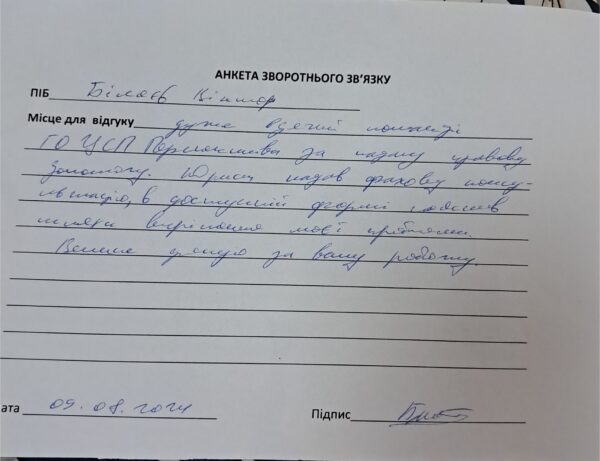 АНКЕТА ЗВОРОТНЬОГО ЗВ'ЯЗКУ
ПІБ Біляєв Віктор
Місце для відгуку дуже вдячний команді
ГО ЦСП за надану правову
допомогу. Юрист надав фахову консу-
льтацію, в доступній формі пояснив
шляхи вирішення моєї проблеми.
Вельми дякую за вашу роботу.
ата 09.08.2024 Підпис